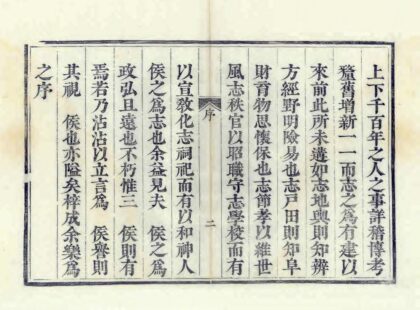 上下千百年之人之事詳稽博考
釐舊增新一一而志之為有建以
來前此所未遘如志地輿則知辨
方經野明險易也志戸田則知阜
財育物思懷保也志節孝以維世
風志秩官以昭職守志學校而有
序
二
以宣敎化志祠祀而有以和神人
侯之為志也余益見夫　侯之為
政弘且遠也不朽惟三　侯則有
焉若乃沾沾以立言為　侯譽則
其視　侯也亦隘矣梓成余樂為
之序